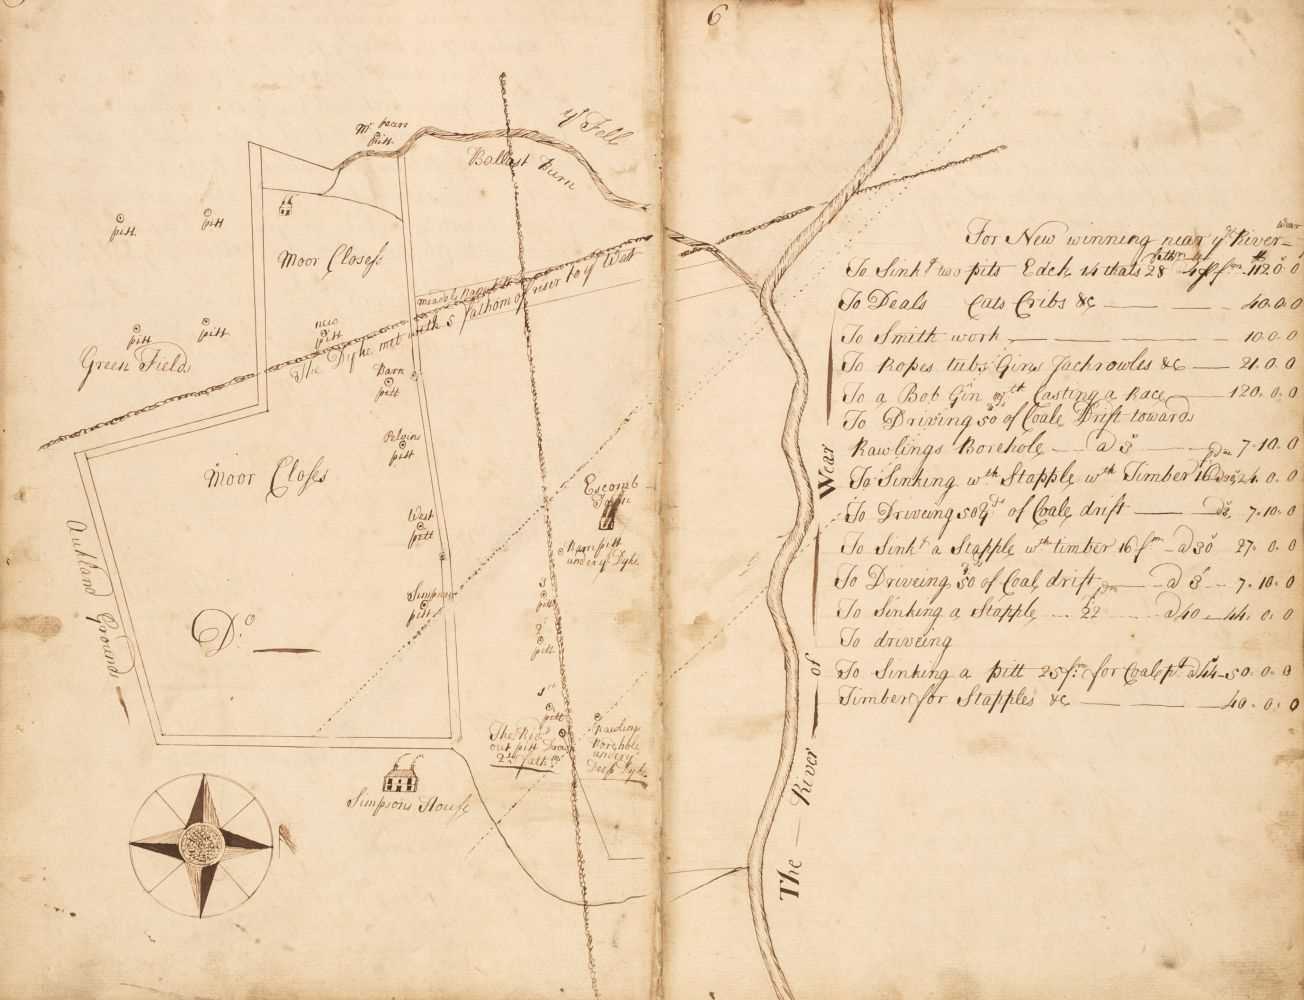 6
Mr
pitt
ye Fell
Ballast Burn
pitt
pitt
Moor Closes
new
pitt
pitt
pitt
Green Field
The Dyke met with 5 fathom riser to ye West
Barn
pitt
Pelvins
pitt
Moor Closes
West
pitt
Escomb
Town
Barn pitt
under ye Dyke
Simpsons
pitt
3
pitt
2
pitt
1st
pitt
Outland Grounds
Do
The
out pitt
2
Rawlings
Borehole
under ye
Deep Dyke
Simpsons House
The River of Wear
For New winning near ye River
Wear
To Sinkg two pits Each 14 thats 28 fathm 112 0 0
To Deals Cats Cribs &c 40.0.0
To Smith work 10.0.0
To Ropes tubs Gins Jackrowles &c 21.0.0
To a Bob Gin wth Casting a Race 120.0.0
To Driving 50 of Coale Drift towards
Rawlings Borehole a 3s 7.10.0
To Sinking wth Stapple wth Timber 16 24.0.0
To Driveing 50 yds of Coale drift 7.10.0
To Sinkg a Stapple wth timber 16 fm a 30s 27.0.0
To Driveing 50 of Coal drift a 3s 7.10.0
To Sinking a Stapple 22 a 40 44.0.0
To driveing
To Sinking a pitt 25 fm for Coale 50.0.0
Timber for Stapples &c 40.0.0